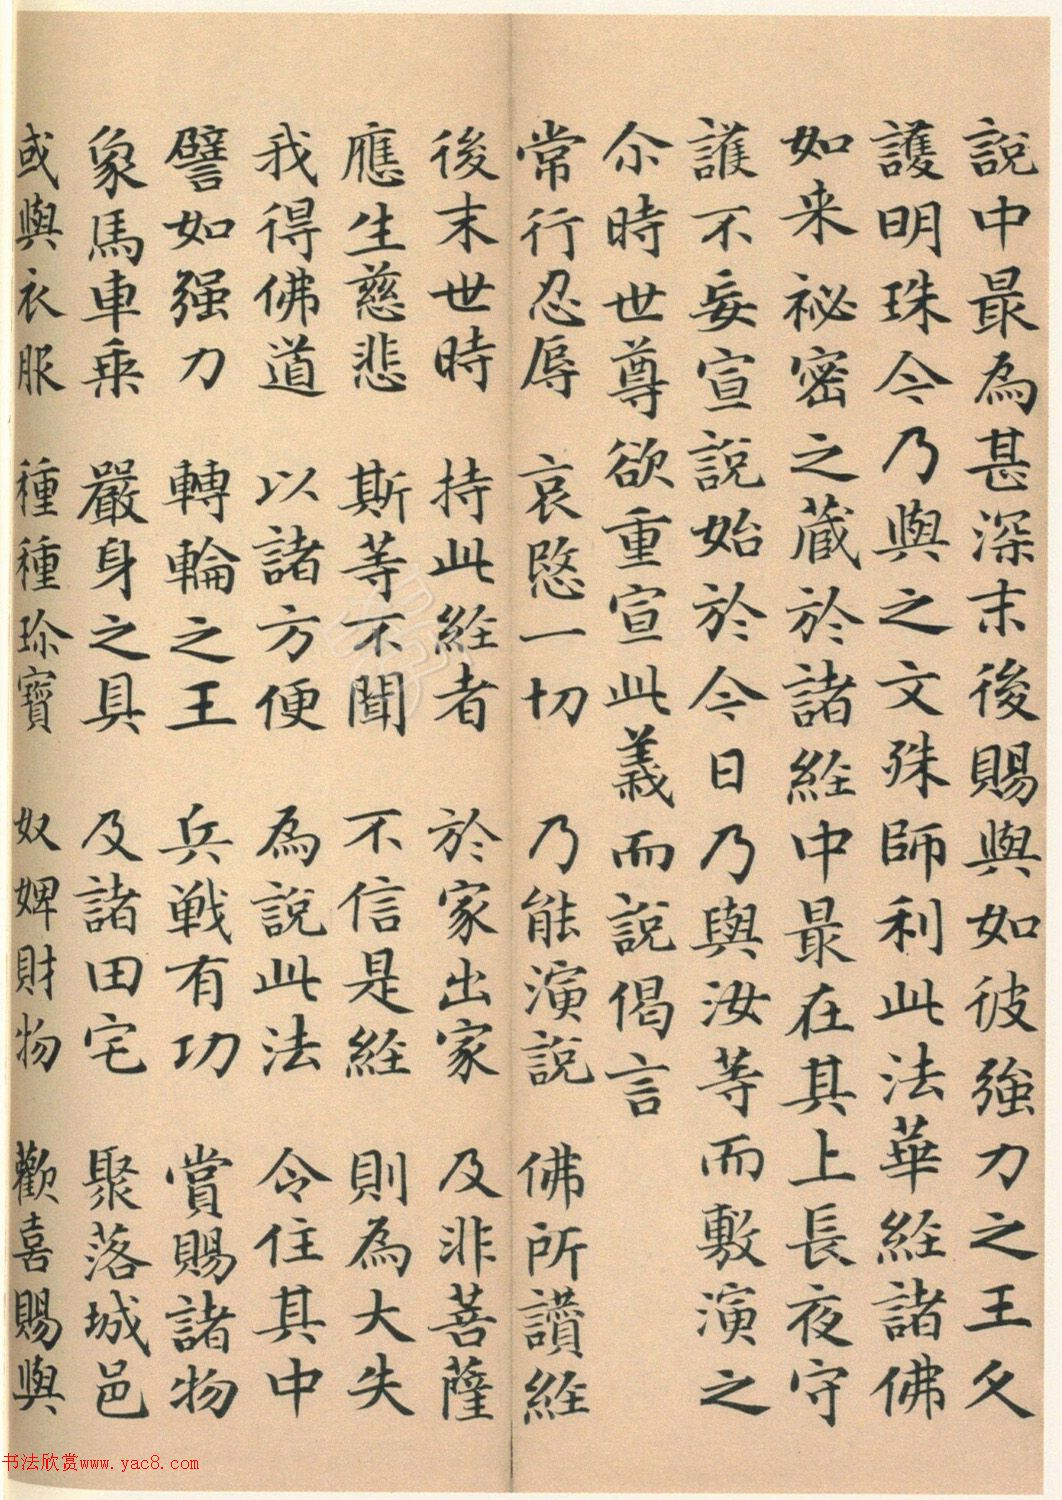 說中最為甚深末後賜與如彼強力之王久
護明珠今乃與之文殊師利此法華經諸佛
如来祕密之蔵於諸經中最在其上長夜守
護不妄宣説始於今日乃與汝等而敷演之
尒時世尊欲重宣此義而說偈言
常行忍辱 哀愍一切 乃能演說 佛所讃經
後末世時 持此經者 於家出家 及非菩薩
應生慈悲 斯等不聞 不信是經 則為大失
我得佛道 以諸方便 為說此法 令住其中
譬如强力 轉輪之王 兵戦有功 賞賜諸物
象馬車乗 嚴身之具 及諸田宅 聚落城邑
或與衣服 種種珎寶 奴婢財物 歡喜賜與
书法欣赏www.yac8.com